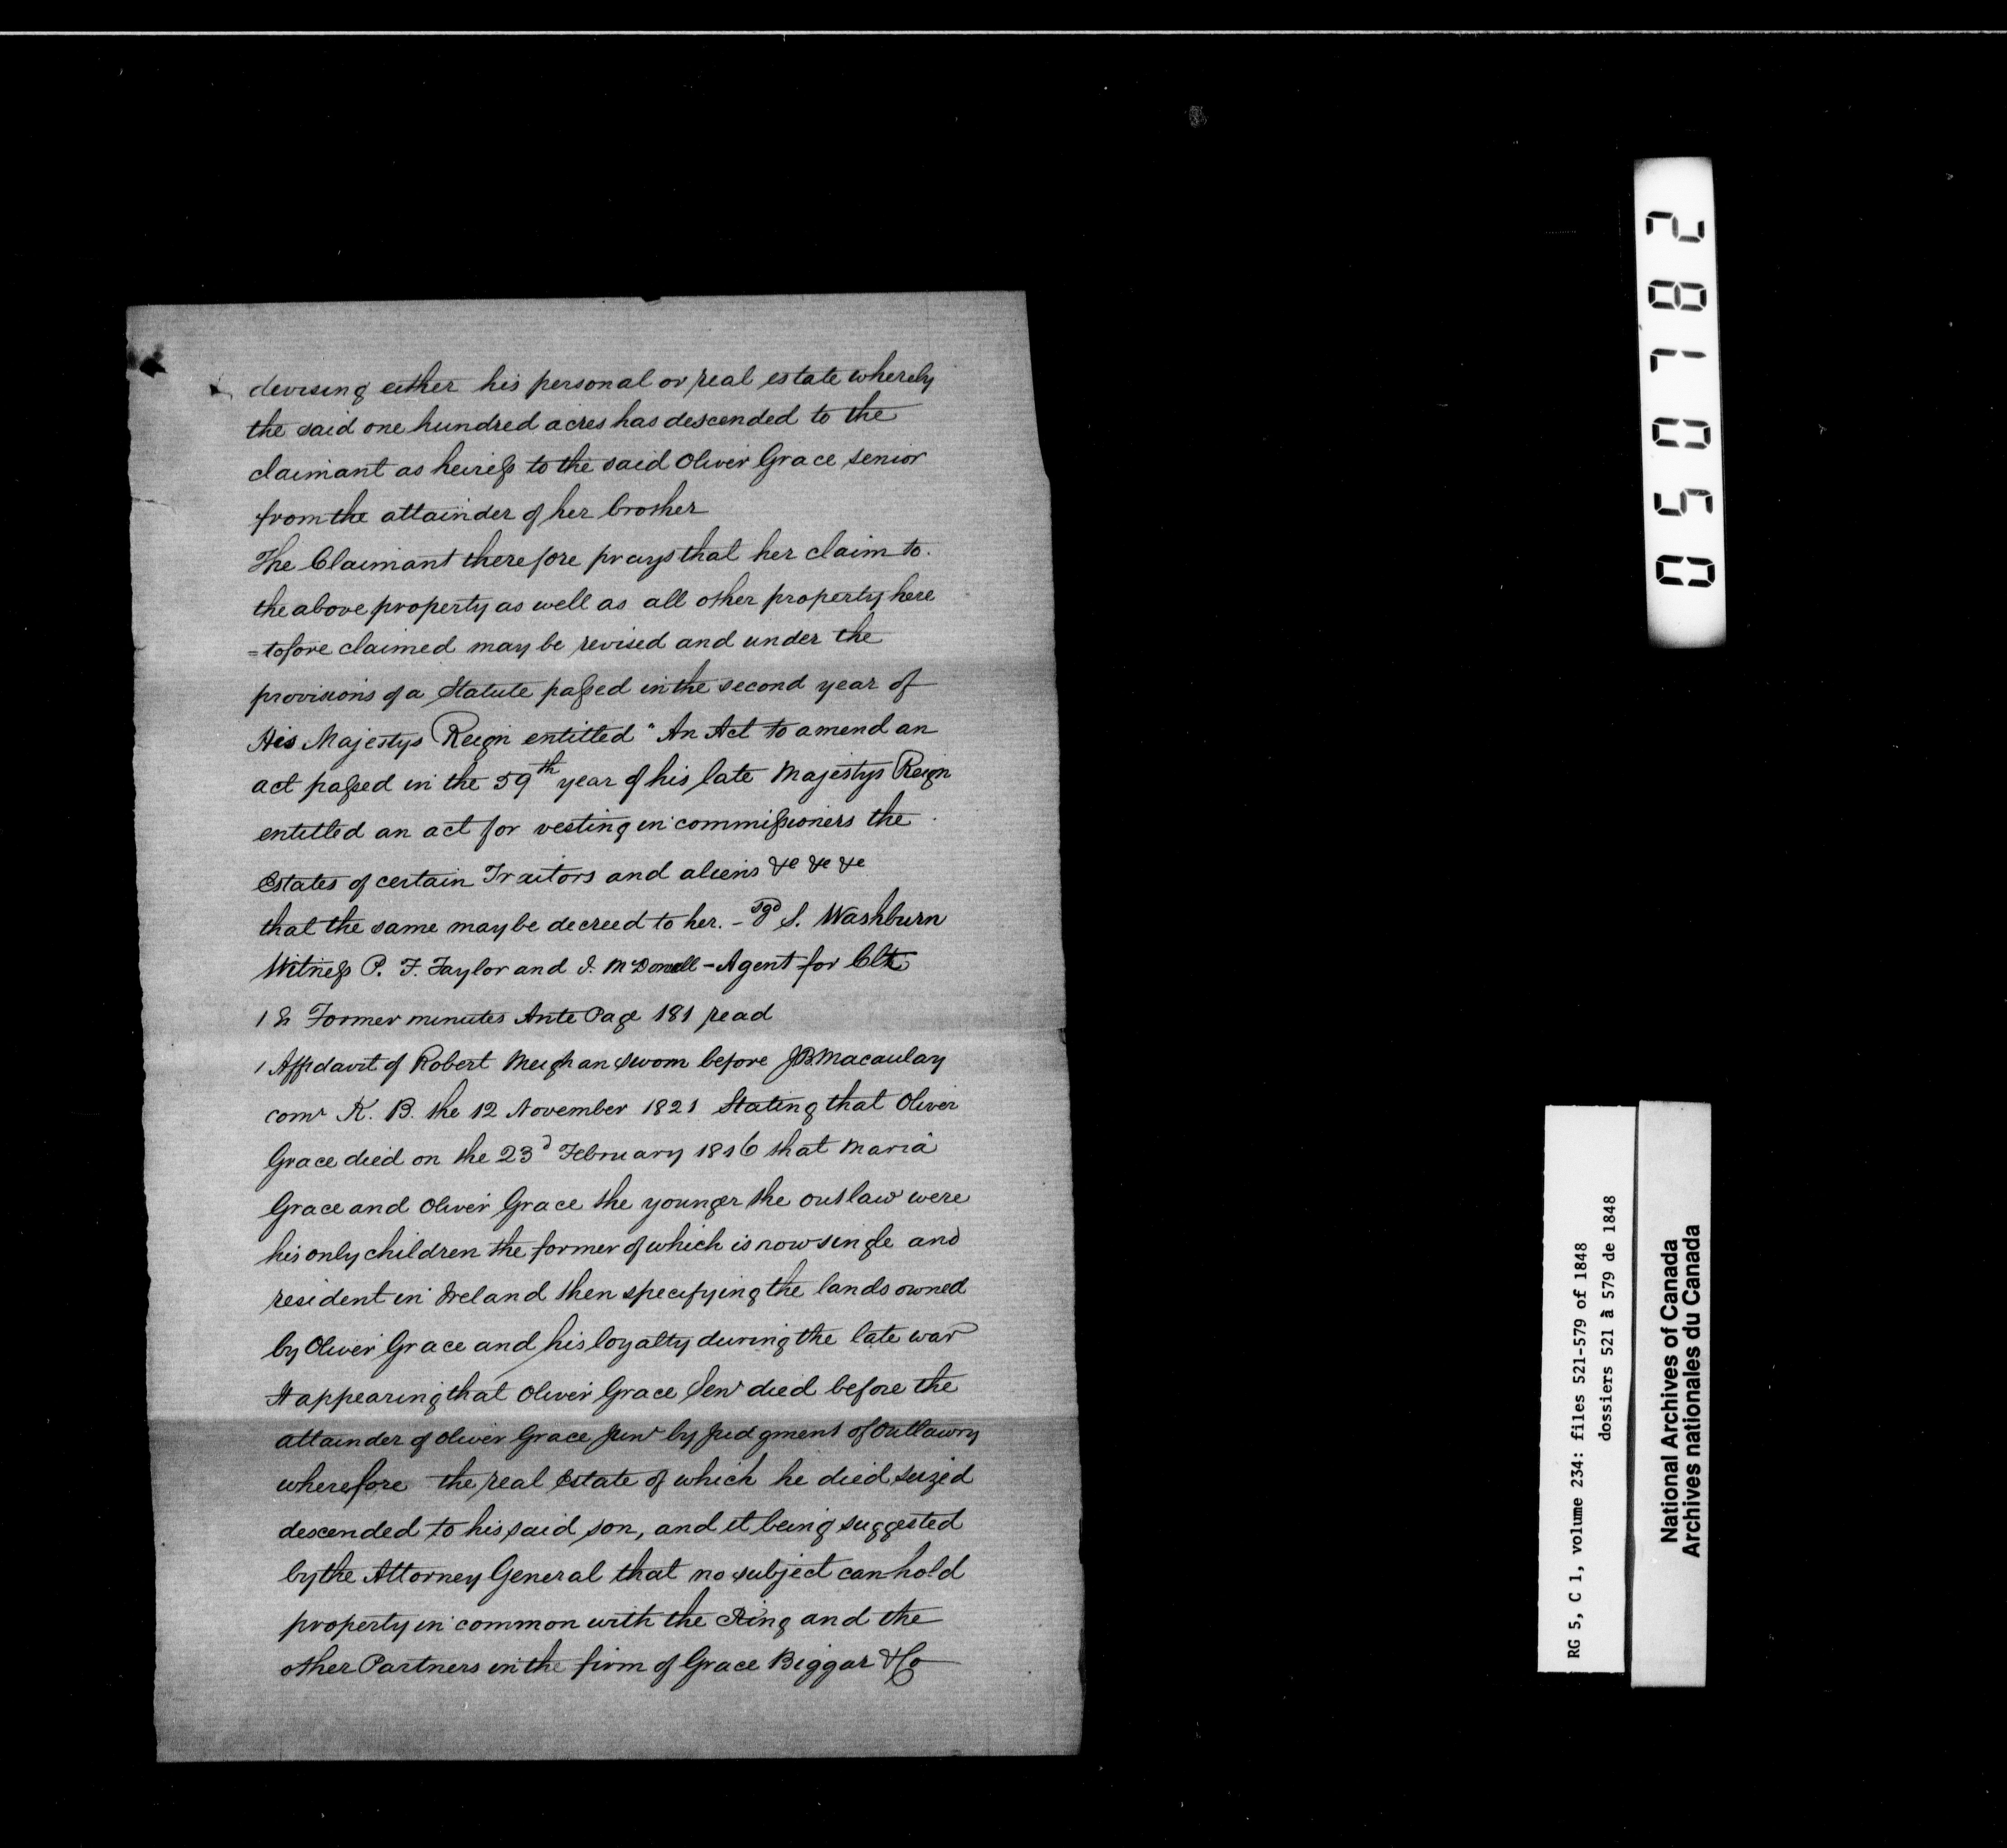 devising either his personal or real estate whereby
the said one hundred acres has descended to the
claimant as heiress to the said Oliver Grace senior
from the attainder of her brother
The Claimant therefore prays that her claim to
the above property as well as all other property here
=tofore claimed may be revised and under the
provisions of a Statute passed in the second year of
His Majestys Reign entitled "An Act to amend an
act passed in the 59th year of his late Majestys Reign
entitled an act for vesting in commissioners the
Estates of certain Traitors and aliens &c &c &c
that the same may be decreed to her. - sgd S. Washburn
Witness P. F. Taylor and J. McDonell - Agent for Clt
Former minutes Ante Page 181 read
1 Affidavit of Robert Meighan sworn before JB Macaulay
comr K. B. the 12 November 1821 Stating that Oliver
Grace died on the 23d February 1816 that Maria
Grace and Oliver Grace the younger the outlaw were
his only children the former of which is now single and
resident in Ireland then specifying the lands owned
by Oliver Grace and his loyalty during the late war
It appearing that Oliver Grace Senr died before the
attainder of Oliver Grace Junr by Judgment of Outlawry
wherefore the real Estate of which he died seized
descended to his said son, and it being suggested
by the Attorney General that no subject can hold
property in common with the King and the
other Partners in the firm of Grace Biggar & Co
050782
RG 5, C 1, volume 234: files 521-579 of 1848
dossiers 521 à 579 de 1848
National Archives of Canada
Archives nationales du Canada